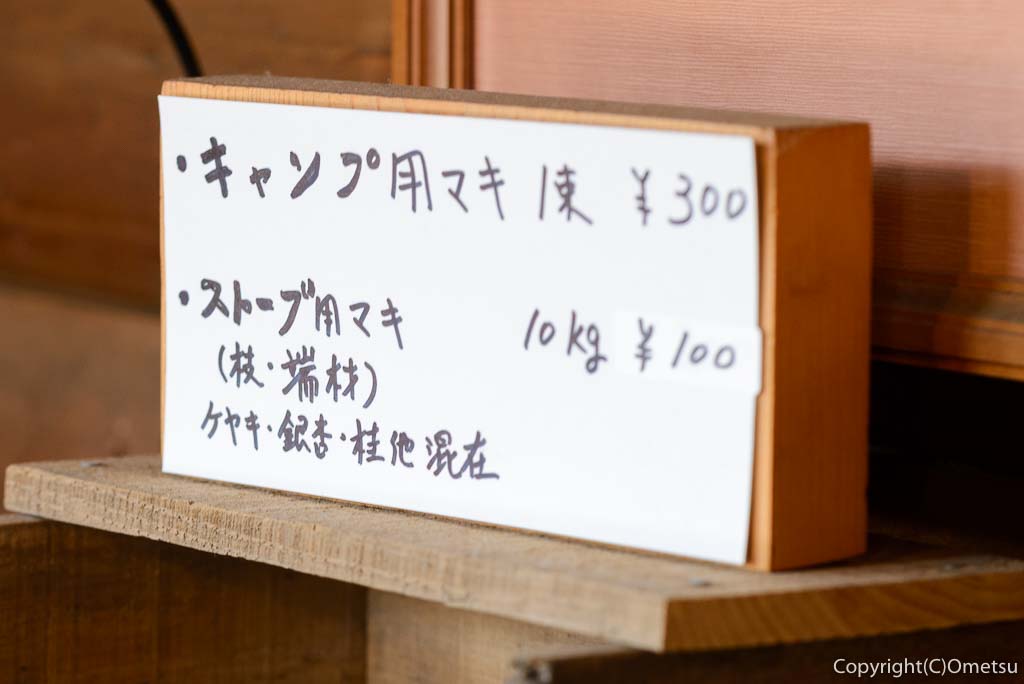 ・キャンプ用マキ 1束 ¥300
・ストーブ用マキ 10kg ¥100
(枝・端材)
ケヤキ・銀杏・桂他混在
Copyright(C)Ometsu